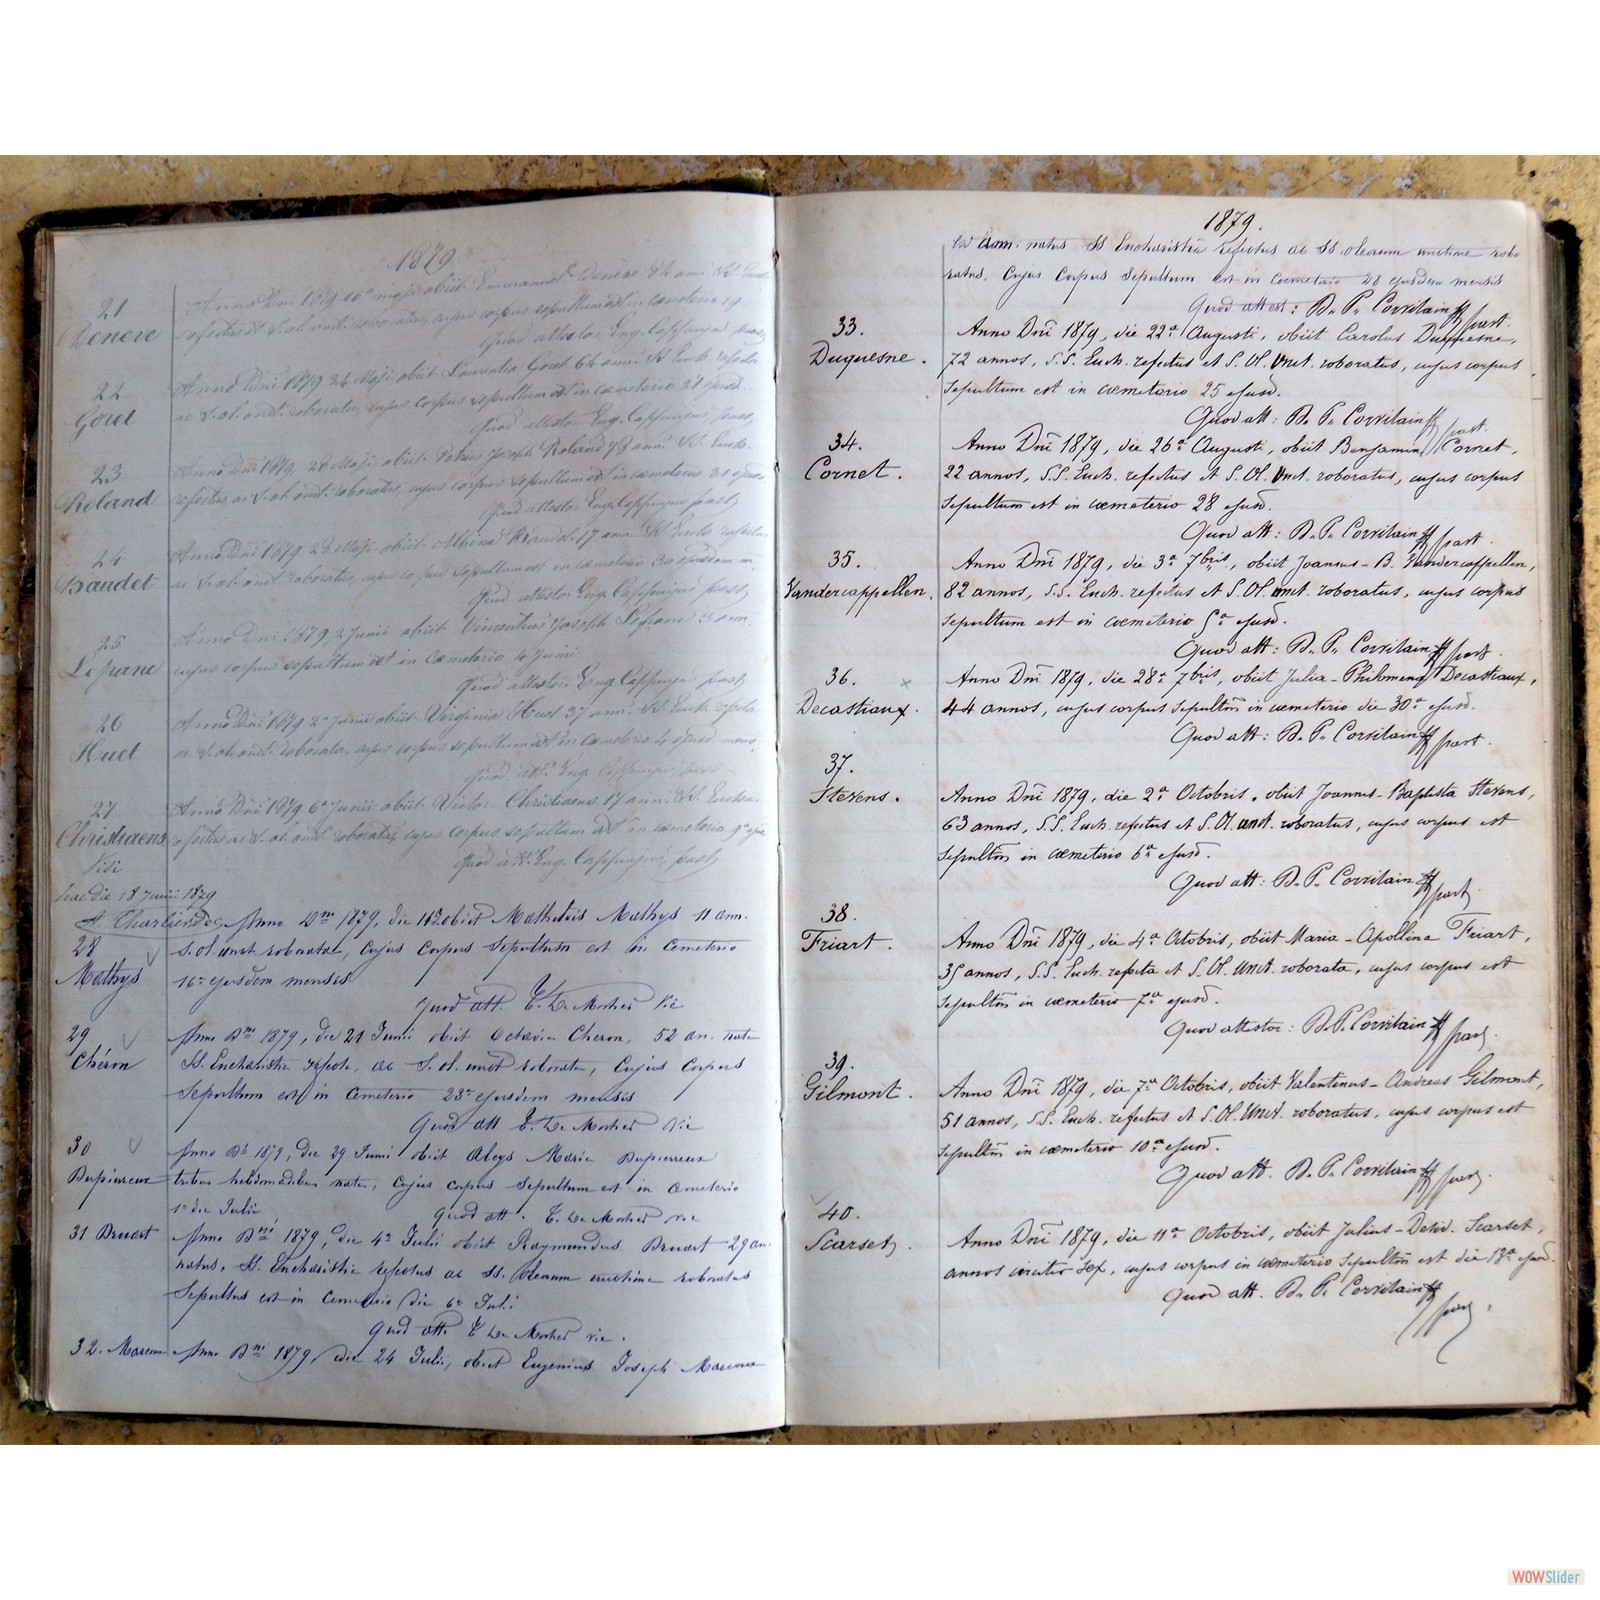 1879
21
Anno Dni 1879 16a maji obiit Emmanuel Denere 84 ann.
Denere
refectus et S. ol. unct. roboratus, cujus corpus sepultum est in cœmeterio 19
Quod attestor Eug. Cappuyns past.
22
Anno Dni 1879 26 Maji obiit Laurentia Goret 64 ann. St Euch. refecta
Goret
ac S. ol. unct. roborata, cujus corpus sepultum est in cœmeterio 28
Quod attestor Eug. Cappuyns past.
23
Anno Dni 1879 28 Maji obiit Joseph Roland 78 ann. St. Euch.
Roland
refectus ac S. ol. unct. roboratus, cujus corpus sepultum est in cœmeterio 31
Quod attestor Eug. Cappuyns past.
24
Anno Dni 1879 28 Maji obiit Albina Baudet 17 ann. St Euch refecta
Baudet
ac S. ol. unct. roborata, cujus corpus sepultum est in cœmeterio 30 ejusdem m.
Quod attestor Eug. Cappuyns past.
25
Anno Dni 1879, 2 Junii obiit Joseph
cujus corpus sepultum est in Cœmeterio 4 Junii
Quod attestor Eug. Cappuyns past.
26
Anno Dni 1879 2a Junii obiit Virginia Huet 37 ann. St. Euch. refecta
Huet
ac S. ol. unct. roborata, cujus corpus sepultum est in cœmeterio 4 ejusd mens.
Quod att. Eug. Cappuyns past.
27
Anno Dni 1879 6a Junii obiit Victor Christiaens 17 ann. St. Eucharis
Christiaens
refectus ac S. ol. unct. roboratus, cujus corpus sepultum est in cœmeterio 9a ejus
Visi
Quod att. Eug. Cappuyns, past.
hac die 18 Junii 1879
Anno Dni 1879, die obiit Mathys 11 ann.
28
S. ol. unct. roboratae, Cujus Corpus Sepultum est in Cemeterio
Mathys
16a ejusdem mensis
Quod att. E. De Mortier Vic
29
Anno Dni 1879, die 21 Junii obiit Octavia Cheron, 52 an. nata
Chéron
SS. Eucharistia refecta, ac S. ol. unct roborata, Cujus Corpus
Sepultum est in Cemeterio 23a ejusdem mensis
Quod att E. De Mortier Vic
30
Anno Dni 1879, die 29 Junii obiit Aleys Maria Dupierreux
Dupierreux
tribus hebdomadibus nata, Cujus corpus Sepultum est in Cemeterio
1a die Julii
Quod att. E. De Mortier vic
31 Bruart
Anno Dni 1879, die 4a Julii obiit Raymundus Bruart 29 an.
natus, SS. Eucharistia refectus ac SS. oleorum unctione roboratus
Sepultus est in Cemeterio die 6a Julii
Quod att. E De Mortier vic.
32.
Anno Dni 1879, die 24 Julii, obiit Eugenius Joseph
1879.
ann. natus SS Eucharistia refectus ac SS. oleorum unctione robo
ratus, Cujus Corpus Sepultum est in Coemeterio 28 ejusdem mensis
Quod att est: D. P. Corvilain past.
33.
Anno Dni 1879, die 22a Augusti, obiit Carolus Duquesne,
Duquesne.
72 annos, S.S. Euch. refectus et S. Ol. Unct. roboratus, cujus corpus
sepultum est in cœmeterio 25 ejusd.
Quod att: D. P. Corvilain past.
34.
Anno Dni 1879, die 26a Augusti, obiit Benjamin Cornet,
Cornet.
22 annos, S.S. Euch. refectus et S. Ol. Unct. roboratus, cujus corpus
sepultum est in cœmeterio 28 ejusd.
Quod att: D. P. Corvilain past.
35.
Anno Dni 1879, die 3a 7bris, obiit Joannes-B. Vandercappellen,
Vandercappellen.
82 annos, S.S. Euch. refectus et S. Ol. unct. roboratus, cujus corpus
sepultum est in cœmeterio 5a ejusd.
Quod att: D. P. Corvilain past.
36.
Anno Dni 1879, die 28a 7bris, obiit Julia-Philomena Decastiaux,
Decastiaux.
44 annos, cujus corpus sepultum in cœmeterio die 30a ejusd.
Quod att: D. P. Corvilain past.
37.
Stevens.
Anno Dni 1879, die 2a Octobris, obiit Joannes-Baptista Stevens,
63 annos, S.S. Euch. refectus et S. Ol. unct. roboratus, cujus corpus est
sepultum in cœmeterio 6a ejusd.
Quod att: D. P. Corvilain past.
38.
Friart.
Anno Dni 1879, die 4a Octobris, obiit Maria-Apollina Friart,
35 annos, S.S. Euch. refecta et S. Ol. Unct. roborata, cujus corpus est
sepultum in cœmeterio 7a ejusd.
Quod attestor: D. P. Corvilain past.
39.
Gilmont.
Anno Dni 1879, die 7a Octobris, obiit Valentinus-Andreas Gilmont,
51 annos, S.S. Euch. refectus et S. Ol. Unct. roboratus, cujus corpus est
sepultum in cœmeterio 10a ejusd.
Quod att. D. P. Corvilain past.
40.
Scarsez.
Anno Dni 1879, die 11a Octobris, obiit Julius-Desid. Scarset,
annos circiter sex, cujus corpus in cœmeterio sepultum est die 13a ejusd.
Quod att. D. P. Corvilain past.
WOWSlider